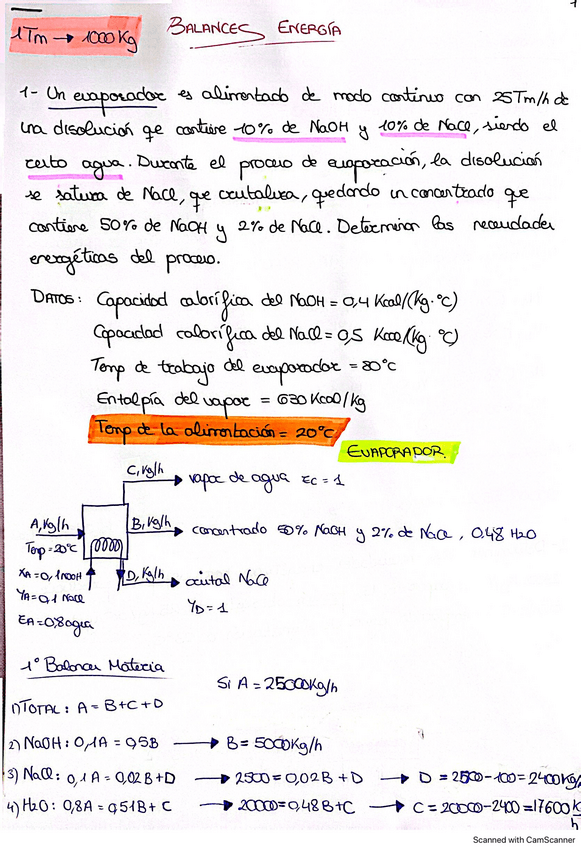 1
1Tm → 1000 Kg
BALANCES ENERGÍA
1- Un evaporador es alimentado de modo continuo con 25 Tm/h de
una disolución qe contiene 10% de NaOH y 10% de NaCl, siendo el
resto agua. Durante el proceso de evaporación, la disolución
se satura de NaCl, que cristaliza, quedando un concentrado que
contiene 50% de NaOH y 2% de NaCl. Determinar las necesidades
energéticas del proceso.
DATOS: Capacidad calorífica del NaOH = 0,4 Kcal/(Kg·°C)
Capacidad calorífica del NaCl = 0,5 Kcal/(Kg·°C)
Temp de trabajo del evaporador = 80°C
Entalpía del vapor = 630 Kcal/Kg
Temp de la alimentación = 20°C
EVAPORADOR.
C, Kg/h → vapor de agua EC = 1
A, Kg/h
B, Kg/h → concentrado 50% NaOH y 2% de NaCl, 0.48 H2O
Temp = 20°C
XA = 0,1 NaOH
D, Kg/h → cristal NaCl
YA = 0.1 NaCl
YD = 1
EA = 0,8 agua
1° Balances Materia
Si A = 25000 Kg/h
1) TOTAL: A = B + C + D
2) NaOH: 0,1A = 0,5B → B = 5000 Kg/h
3) NaCl: 0,1A = 0,02B + D → 2500 = 0,02B + D → D = 2500 - 100 = 2400 Kg/
4) H2O: 0,8A = 0,51B + C → 20000 = 0,48B + C → C = 20000 - 2400 = 17600 K
h
Scanned with CamScanner